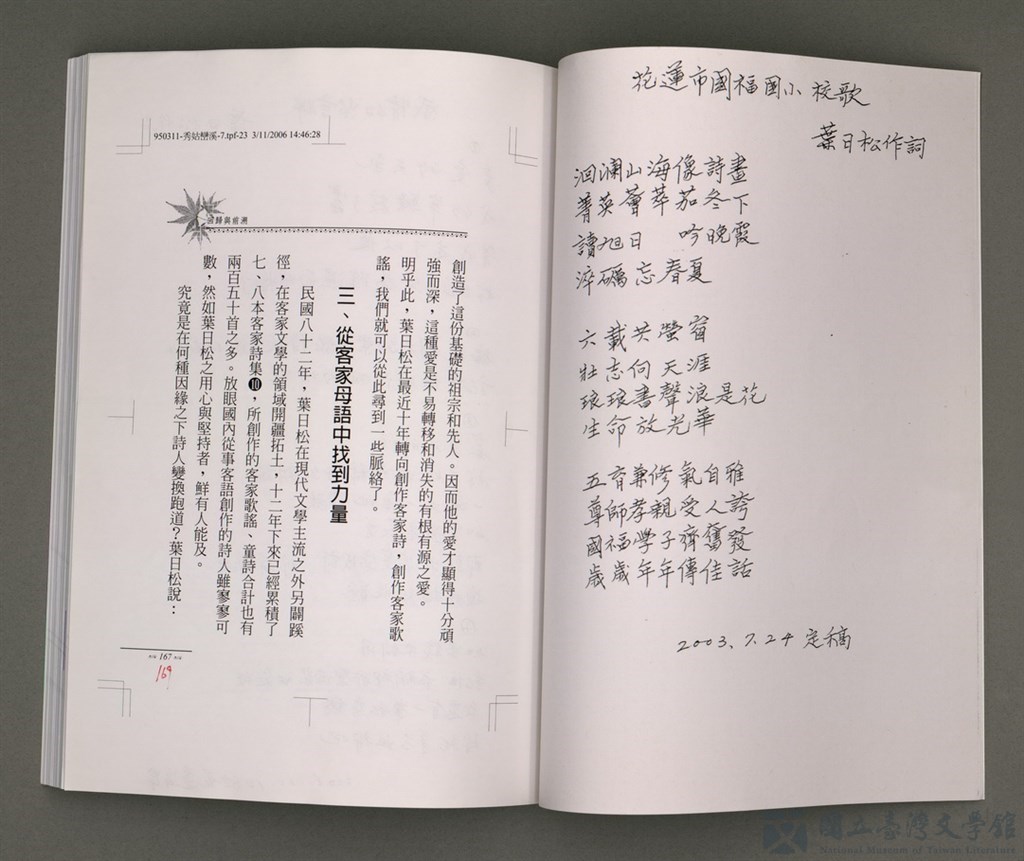 950311-秀姑巒溪-7.tpf-23 3/11/2006 14:46:28
回歸與前溯
創造了這份基礎的祖宗和先人。因而他的愛才顯得十分頑
強而深，這種愛是不易轉移和消失的有根有源之愛。
明乎此，葉日松在最近十年轉向創作客家詩，創作客家歌
謠，我們就可以從此尋到一些脈絡了。
三、從客家母語中找到力量
民國八十二年，葉日松在現代文學主流之外另闢蹊
徑，在客家文學的領域開疆拓土，十二年下來已經累積了
七、八本客家詩集❿，所創作的客家歌謠、童詩合計也有
兩百五十首之多。放眼國內從事客語創作的詩人雖寥寥可
數，然如葉日松之用心與堅持者，鮮有人能及。
究竟是在何種因緣之下詩人變換跑道？葉日松說：
167
169
花蓮市國福國小校歌
葉日松作詞
洄瀾山海像詩畫
菁英薈萃茄苳下
讀旭日 吟晚霞
淬礪忘春夏
六載共螢窗
壯志向天涯
琅琅書聲浪是花
生命放光華
五育兼修氣自雅
尊師孝親受人誇
國福學子齊奮發
歲歲年年傳佳話
2003.7.24 定稿
國立臺灣文學館
National Museum of Taiwan Literature